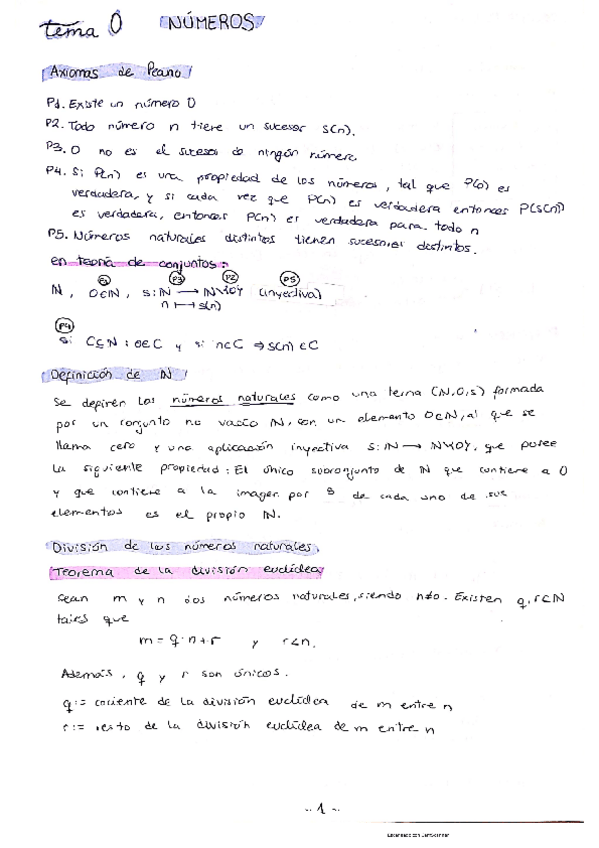 tema 0 NÚMEROS
Axiomas de Peano
P1. Existe un número 0
P2. Todo número n tiene un sucesor s(n).
P3. 0 no es el sucesor de ningún número
P4. Si P(n) es una propiedad de los números, tal que P(0) es
verdadera, y si cada vez que P(n) es verdadera entonces P(s(n))
es verdadera, entonces P(n) es verdadera para todo n
P5. Números naturales distintos tienen sucesores distintos.
en teoría de conjuntos:
P1 P3 P2 P5
ℕ, 0∈ℕ, s: ℕ → ℕ\{0} (inyectiva)
n ↦ s(n)
P4
Si C⊆ℕ : 0∈C y si n∈C ⇒ s(n)∈C
Definición de ℕ
Se definen los números naturales como una terna (ℕ,0,s) formada
por un conjunto no vacío ℕ, con un elemento 0∈ℕ, al que se
llama cero y una aplicación inyectiva s: ℕ → ℕ\{0}, que posee
la siguiente propiedad: El único subconjunto de ℕ que contiene a 0
y que contiene a la imagen por s de cada uno de sus
elementos es el propio ℕ.
División de los números naturales.
Teorema de la división euclídea
Sean m y n dos números naturales, siendo n≠0. Existen q, r∈ℕ
tales que
m = q·n+r y r<n.
Además, q y r son únicos.
q:= cociente de la división euclídea de m entre n
r:= resto de la división euclídea de m entre n
-- 1 --